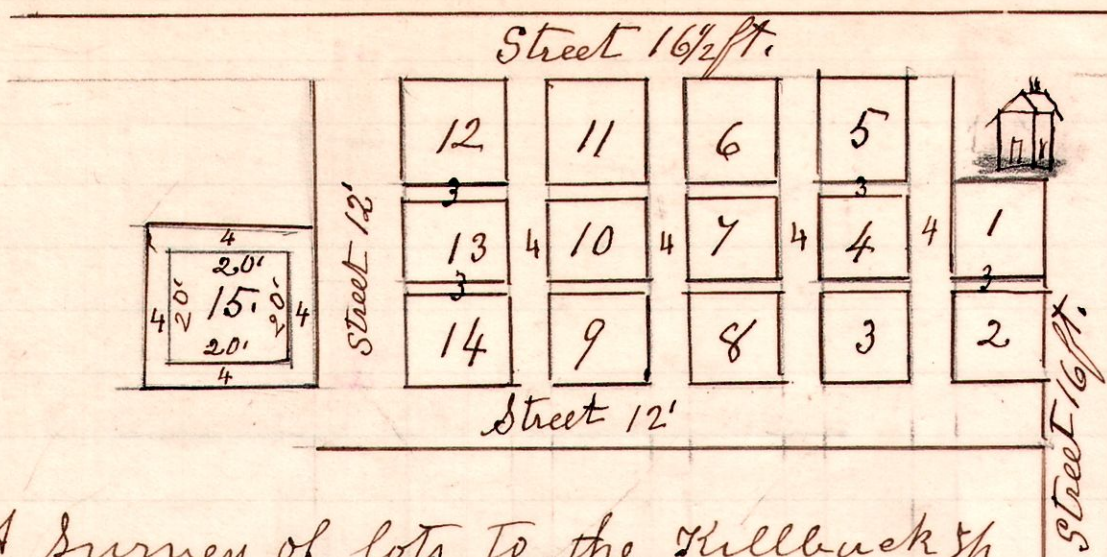 Street 16½ ft.
12 11 6 5
3 3
Street 12'
13 4 10 4 7 4 4 4 1
3 3
14 9 8 3 2
4
20'
4 20' 15. 20' 4
20'
4
Street 12'
Street 16 ft.
A Survey of lots to the Killbuck Tp